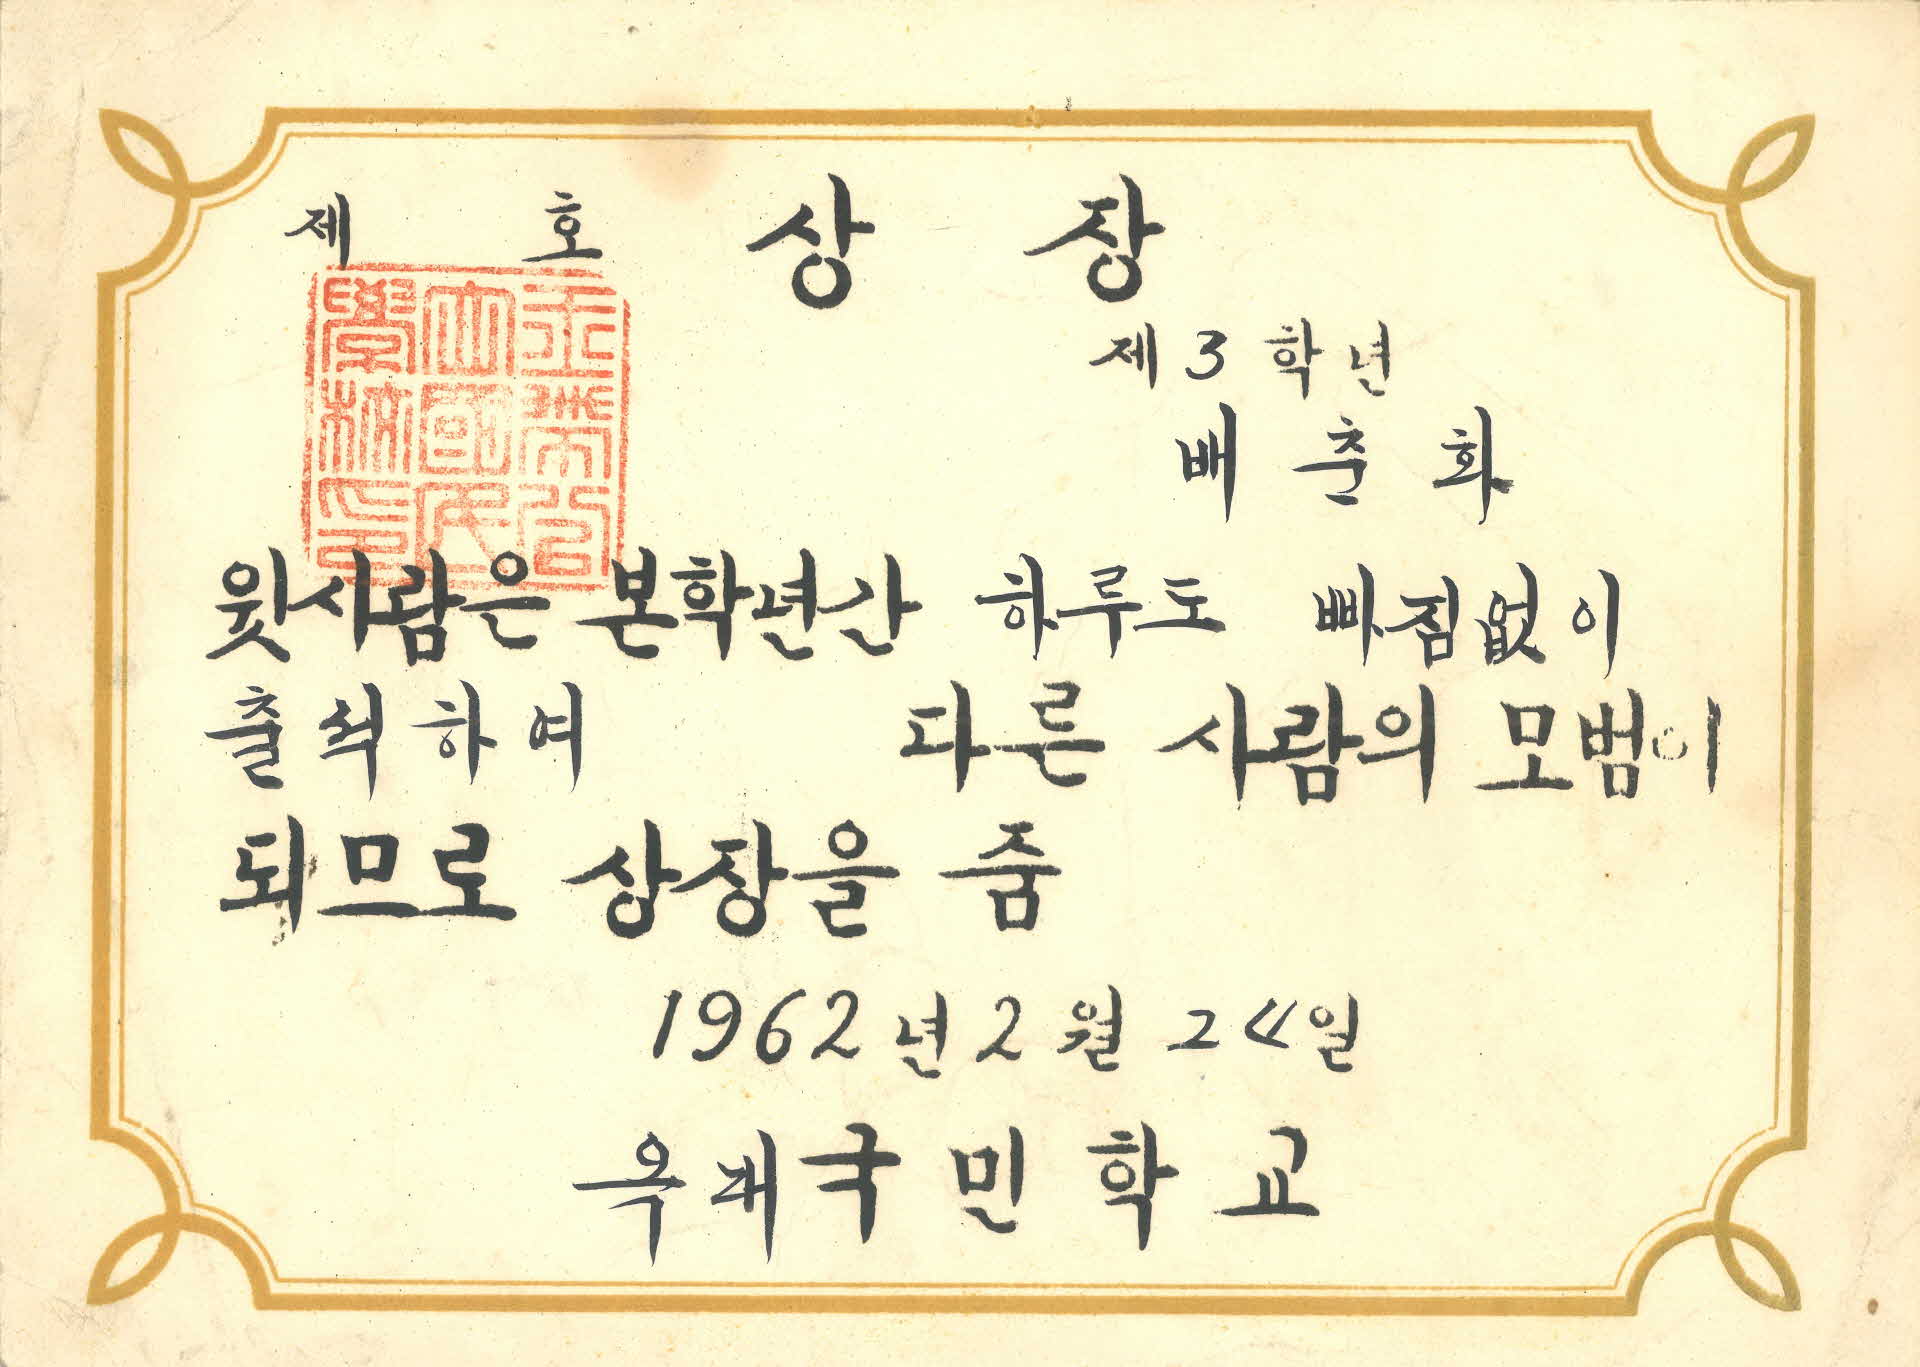 제 호 상 장
玉帶公
立國民
學校印
제 3 학년
배 춘 화
윗사람은 본학년간 하루도 빠짐없이
출석하여 다른 사람의 모범이
되므로 상장을 줌
1962년 2월 24일
옥대국민학교